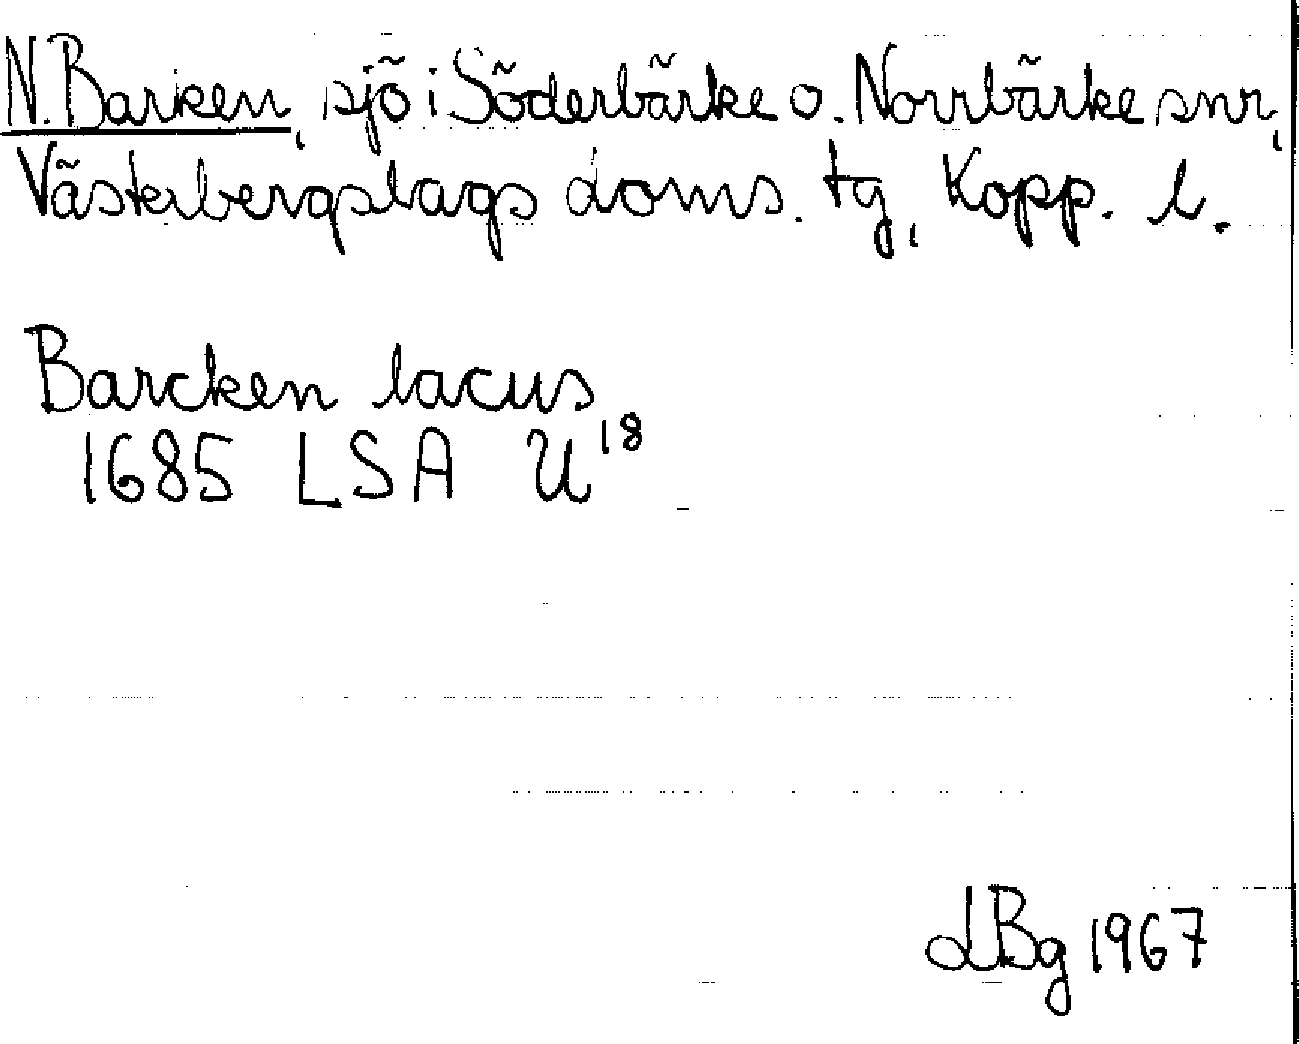 N. Barken, sjö i Söderbärke o. Norrbärke snr,
Västerbergslags doms. tg, Kopp. l.
Barcken lacus
1685 LSA U¹⁸
LBg 1967